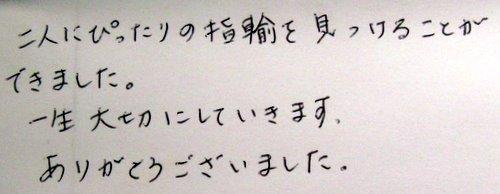 二人にぴったりの指輪を見つけることが
できました。
一生大切にしていきます。
ありがとうございました。